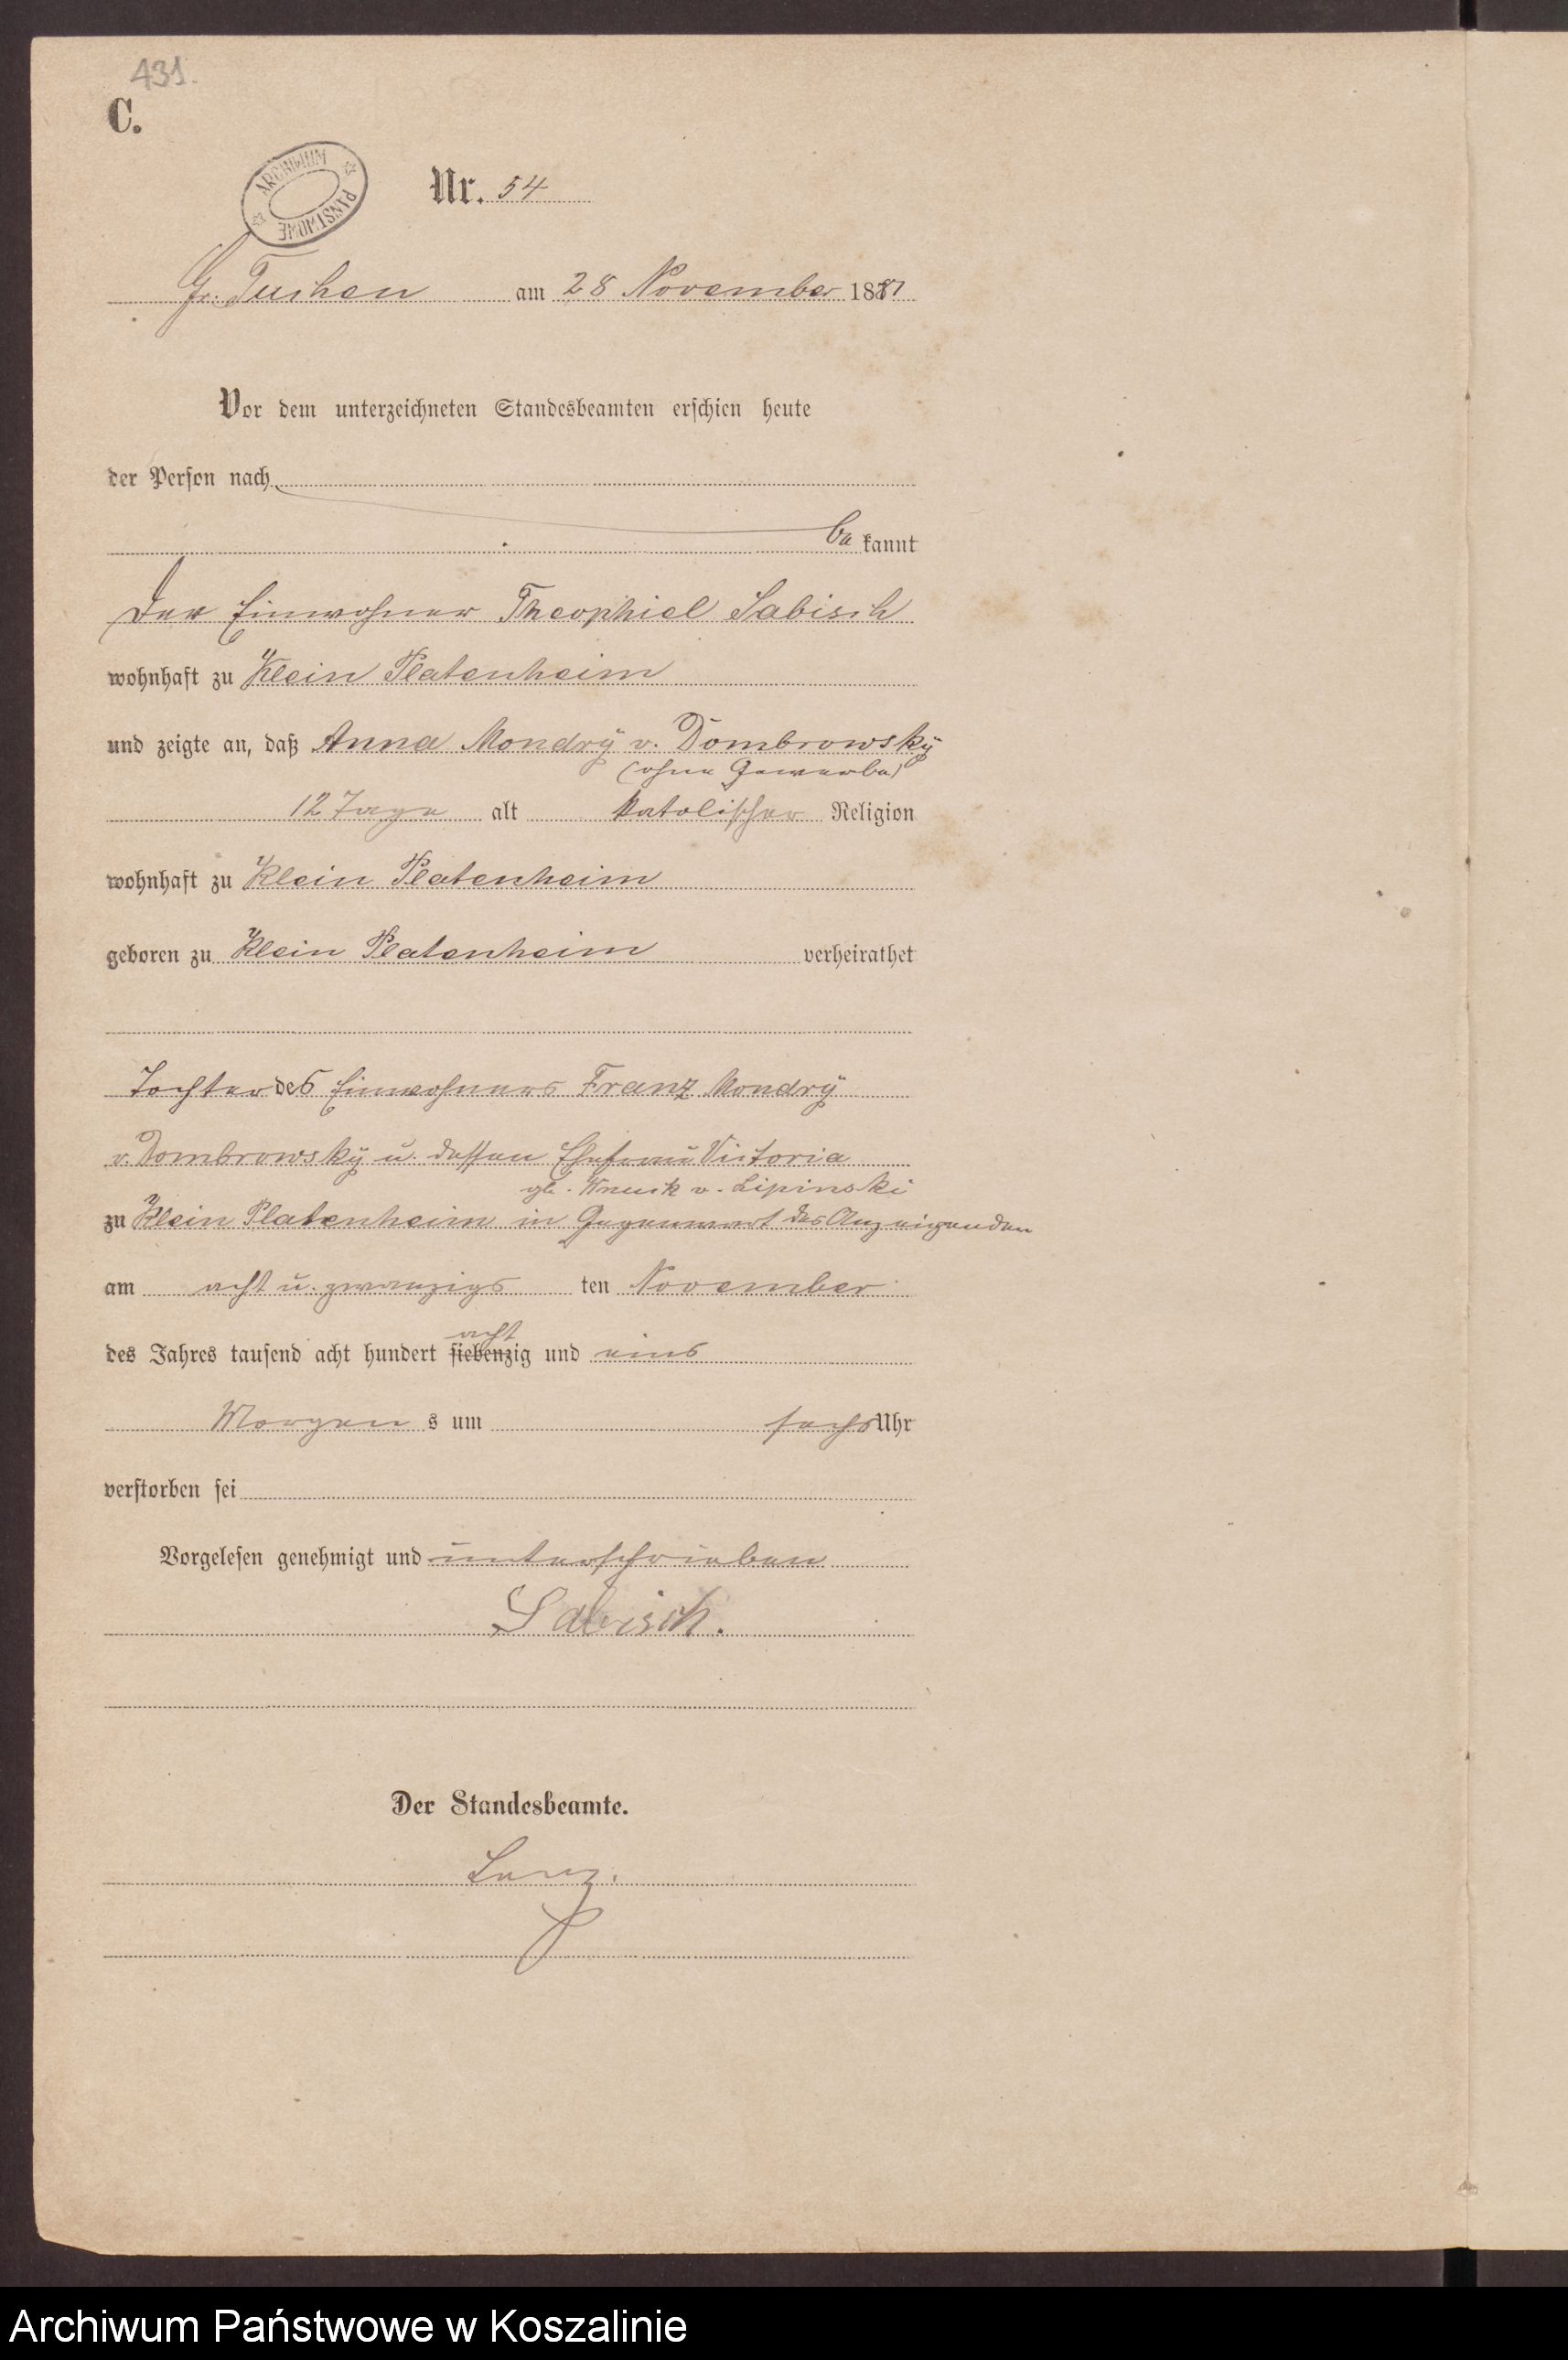 431.
C.
ARCHIWUM PAŃSTWOWE
Nr. 54
Gr. Tuchen am 28 November 1881
Vor dem unterzeichneten Standesbeamten erschien heute
der Person nach
be kannt
Der Einwohner Theophiel Sabisch
wohnhaft zu Klein Platenheim
und zeigte an, daß Anna Mondrÿ v. Dombrowskÿ
(ohne Gewerbe)
12 Tage alt katolischer Religion
wohnhaft zu Klein Platenheim
geboren zu Klein Platenheim verheirathet
Tochter des Einwohners Franz Mondrÿ
v. Dombrowskÿ u. dessen Ehefrau Victoria
gb. Wnuck v. Lipinski
zu Klein Platenheim in Gegenwart des Anzeigenden
am acht u. zwanzigs ten November
acht
des Jahres tausend acht hundert siebenzig und eins
Morgen s um sechs Uhr
verstorben sei
Vorgelesen genehmigt und unterschrieben
Sabisch.
Der Standesbeamte.
Archiwum Państwowe w Koszalinie